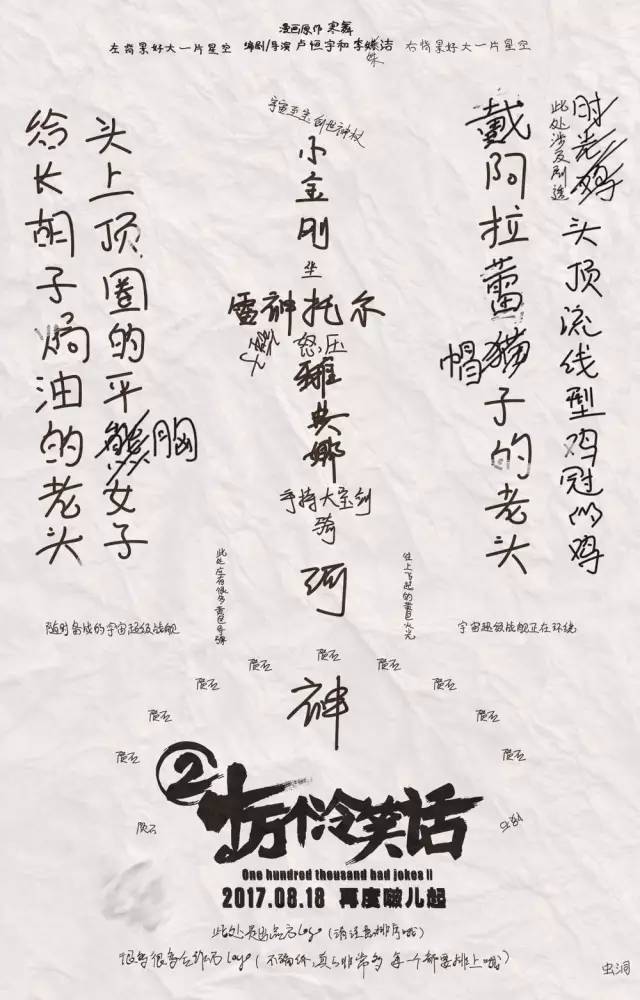 漫画原作 寒舞
左背景好大一片星空 编剧/导演 卢恒宇和李姝洁 右背景好大一片星空
宇宙至宝创世神杖
时光鸡
此处涉及剧透
头顶流线型鸡冠的鸡
戴阿拉蕾猫子的老头
帽
小金刚
坐
雷神托尔
怒压
雅典娜
手持大宝剑
骑
河
神
头上顶圈的平胸女子
给长胡子焗油的老头
随时备战的宇宙超级战舰
往上飞起的黄色火光
宇宙超级战舰正在环绕
陨石
陨石
陨石
陨石
陨石
陨石
陨石
陨石
陨石
陨石
2
十万个冷笑话
One hundred thousand bad jokes II
2017.08.18 再度啵儿起
此处是出品方logo(请注意排序哦)
很多很多合作方logo(不骗你,真的非常多 每一个都要排上哦)
虫洞